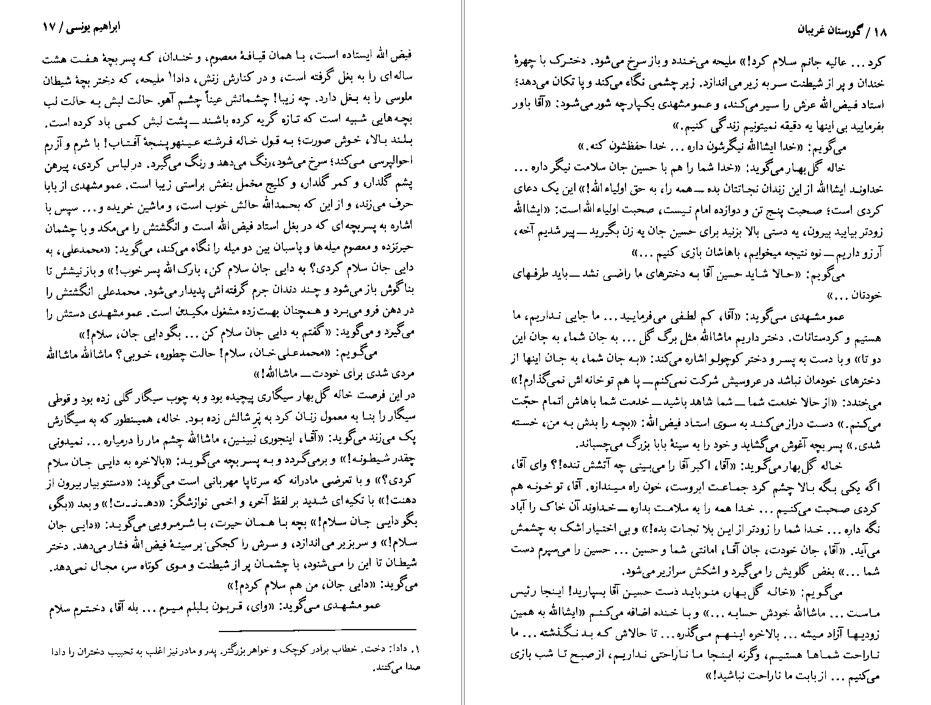 ابراهیم یونسی / ۱۷
فیض الله ایستاده است، با همان قیافهٔ معصوم، و خندان، که پسر بچهٔ هفت هشت
ساله ای را به بغل گرفته است، و در کنارش زنش، دادا۱ ملیحه، که دختر بچهٔ شیطان
ملوسی را به بغل دارد. چه زیبا! چشمانش عیناً چشم آهو. حالت لبش به حالت لب
بچه‌هایی شبیه است که تازه گریه کرده باشند ــ پشت لبش کمی باد کرده است.
بلند بالا، خوش صورت؛ به قول خاله فرشته عینهو پنجهٔ آفتاب! با شرم و آزرم
احوالپرسی می‌کند؛ سرخ می‌شود، رنگ می‌دهد و رنگ می‌گیرد. در لباس کردی، پیرهن
پشم گلدار، و کمر گلدار، و کلیج مخمل بنفش براستی زیبا است. عمو مشهدی از بابا
حرف می‌زند، و از این که بحمدالله حالش خوب است، و ماشین خریده و... سپس با
اشاره به پسر بچه ای که در بغل استاد فیض الله است و انگشتش را می‌مکد و با چشمان
حیرتزده و معصوم میله‌ها و پاسبان بین دو میله را نگاه می‌کند، می‌گوید: «محمدعلی، به
دایی جان سلام کردی؟ به دایی جان سلام کن، بارک الله پسر خوب!» و باز نیشش تا
بناگوش باز می‌شود و چند دندان جرم گرفته‌اش پدیدار می‌شود. محمدعلی انگشتش را
در دهن فرو می‌برد و همچنان بهت زده مشغول مکیدن است. عمو مشهدی دستش را
می‌گیرد و می‌گوید: «گفتم به دایی جان سلام کن ... بگو دایی جان، سلام!»
می‌گویم: «محمدعلی خان، سلام! حالت چطوره، خوبی؟ ماشاالله ماشاالله
مردی شدی برای خودت ــ ماشاالله!»
در این فرصت خاله گل بهار سیگاری پیچیده بود و به چوب سیگار گلی زده بود و قوطی
سیگار را بنا به معمول زنان کرد به پَر شالش زده بود. خاله، همینطور که به سیگارش
پک می‌زند می‌گوید: «آقا، اینجوری نبینین، ماشاالله چشم مار را درمیاره ... نمیدونی
چقدر شیطونه!» و برمی‌گردد و به پسر بچه می‌گوید: «بالاخره به دایی جان سلام
کردی؟» و با تعرضی مادرانه که سرتاپا مهربانی است می‌گوید: «دستتو بیار بیرون از
دهنت!» با تکیه ای شدید بر لفظ آخر، و اخمی نوازشگر: «دهـ‌نـ‌ت!» و بعد «بگو،
بگو دایی جان سلام!» بچه با همان حیرت، با شرمرویی می‌گوید: «دایی جان
سلام!» و سربزیر می‌اندازد، و سرش را کجکی بر سینهٔ فیض الله فشار می‌دهد. دختر
شیطان تا این را می‌شنود، با چشمان پر از شیطنت و موی کوتاه سر، مجال نمی‌دهد.
می‌گوید: «دایی جان، من هم سلام کردم!»
عمو مشهدی می‌گوید: «وای، قربون بلبلم میرم ... بله آقا، دخترم سلام
۱. دادا: دخت. خطاب برادر کوچک و خواهر بزرگتر. پدر و مادر نیز اغلب به تحبیب دختران را دادا
صدا می‌کنند.
۱۸ / گورستان غریبان
کرد ... عالیه جانم سلام کرد!» ملیحه می‌خندد و باز سرخ می‌شود. دخترک با چهرهٔ
خندان و پر از شیطنت سر به زیر می‌اندازد. زیر چشمی نگاه می‌کند و پا تکان می‌دهد؛
استاد فیض الله عرش را سیر می‌کند، و عمو مشهدی یکپارچه شور می‌شود: «آقا باور
بفرمایید بی اینها یه دقیقه نمیتونیم زندگی کنیم.»
می‌گویم: «خدا ایشاالله نیگرشون داره ... خدا حفظشون کنه.»
خاله گل بهار می‌گوید: «خدا شما را هم با حسین جان سلامت نیگر داره ...
خداوند ایشاالله از این زندان نجاتتان بده ــ همه را، به حق اولیاء الله!» این یک دعای
کردی است؛ صحبت پنج تن و دوازده امام نیست، صحبت اولیاء الله است: «ایشاالله
زودتر بیایید بیرون، یه دستی بالا بزنید برای حسین جان یه زن بگیرید ــ پیر شدیم آخه،
آرزو داریم ــ نوه نتیجه میخوایم، باهاشان بازی کنیم ...»
می‌گویم: «حالا شاید حسین آقا به دخترهای ما راضی نشد ــ باید طرفهای
خودتان ...»
عمو مشهدی می‌گوید: «آقا، کم لطفی می‌فرمایید... ما جایی نداریم، ما
هستیم و کردستانات. دختر داریم ماشاالله مثل برگ گل ... به جان شما، به جان این
دو تا» و با دست به پسر و دختر کوچولو اشاره می‌کند: «به جان شما، به جان اینها از
دخترهای خودمان نباشد در عروسیش شرکت نمی‌کنم ــ پا هم تو خانه اش نمی‌گذارم!»
می‌خندد: «از حالا خدمت شما ــ شما شاهد باشید ــ خدمت شما باهاش اتمام حجّت
می‌کنم.» دست دراز می‌کند به سوی استاد فیض الله: «بچه را بدش به من، خسته
شدی.» پسر بچه آغوش می‌گشاید و خود را به سینهٔ بابا بزرگ می‌چسباند.
خاله گل بهار می‌گوید: «آقا، اکبر آقا را می‌بینی چه آتشش تنده!؟ وای آقا،
اگه یکی بگه بالا چشم کرد جماعت ابروست، خون راه میندازه. آقا، تو خونه هم
کردی صحبت می‌کنیم ... خدا همه را به سلامت بداره ــ خداوند آن خاک را آباد
نگه داره ... خدا شما را زودتر از این بلا نجات بده!» و بی اختیار اشک به چشمش
می‌آید. «آقا، جان خودت، جان آقا، امانتی شما و حسین ... حسین را می‌سپرم دست
شما ...» بغض گلویش را می‌گیرد و اشکش سرازیر می‌شود.
می‌گویم: «خاله گل بهار، منو باید دست حسین آقا بسپارید! اینجا رئیس
ماست ... ماشاالله خودش حسابه ...» و با خنده اضافه می‌کنم «ایشاالله به همین
زودیها آزاد میشه ... بالاخره اینهم می‌گذره... تا حالاش که بد نگذشته ... ما
ناراحت شماها هستیم، وگرنه اینجا ما ناراحتی نداریم، از صبح تا شب بازی
می‌کنیم ... از بابت ما ناراحت نباشید!»